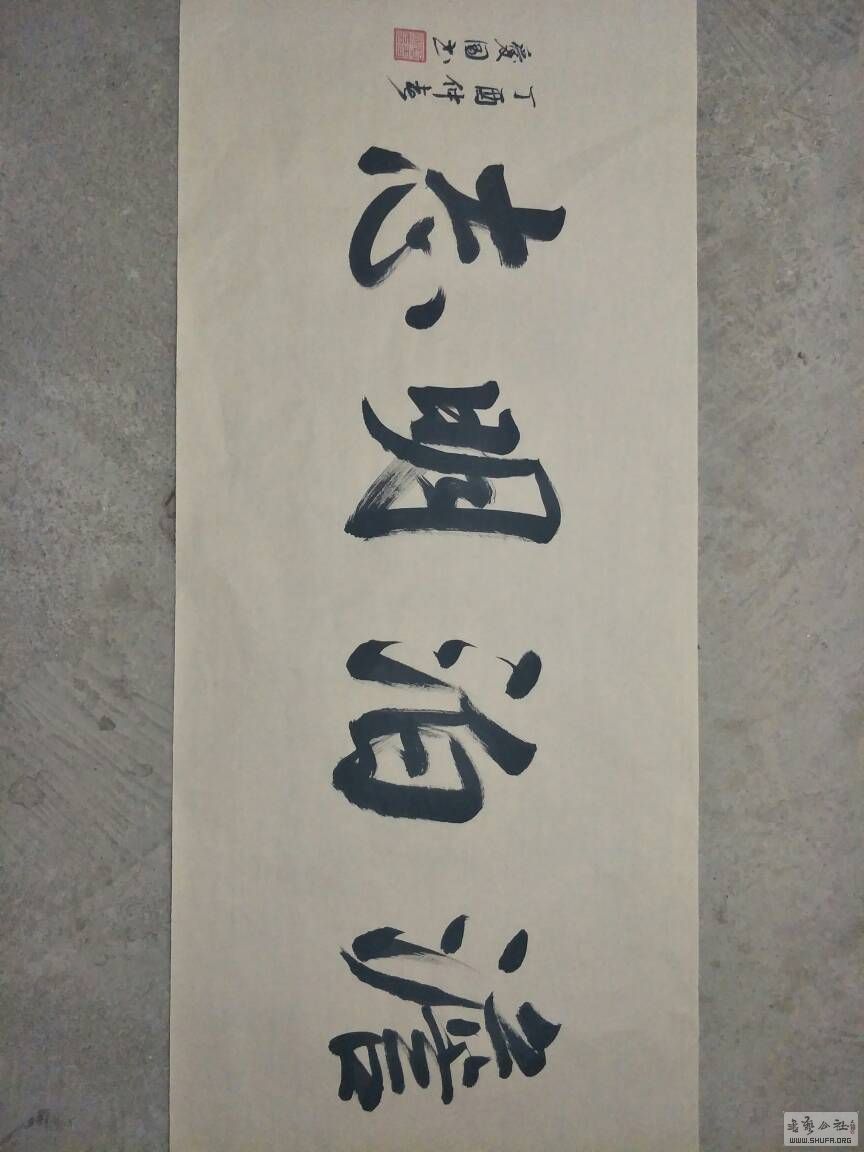 澹泊明志
丁酉仲春
愛國书
書藝公社
WWW.SHUFA.ORG